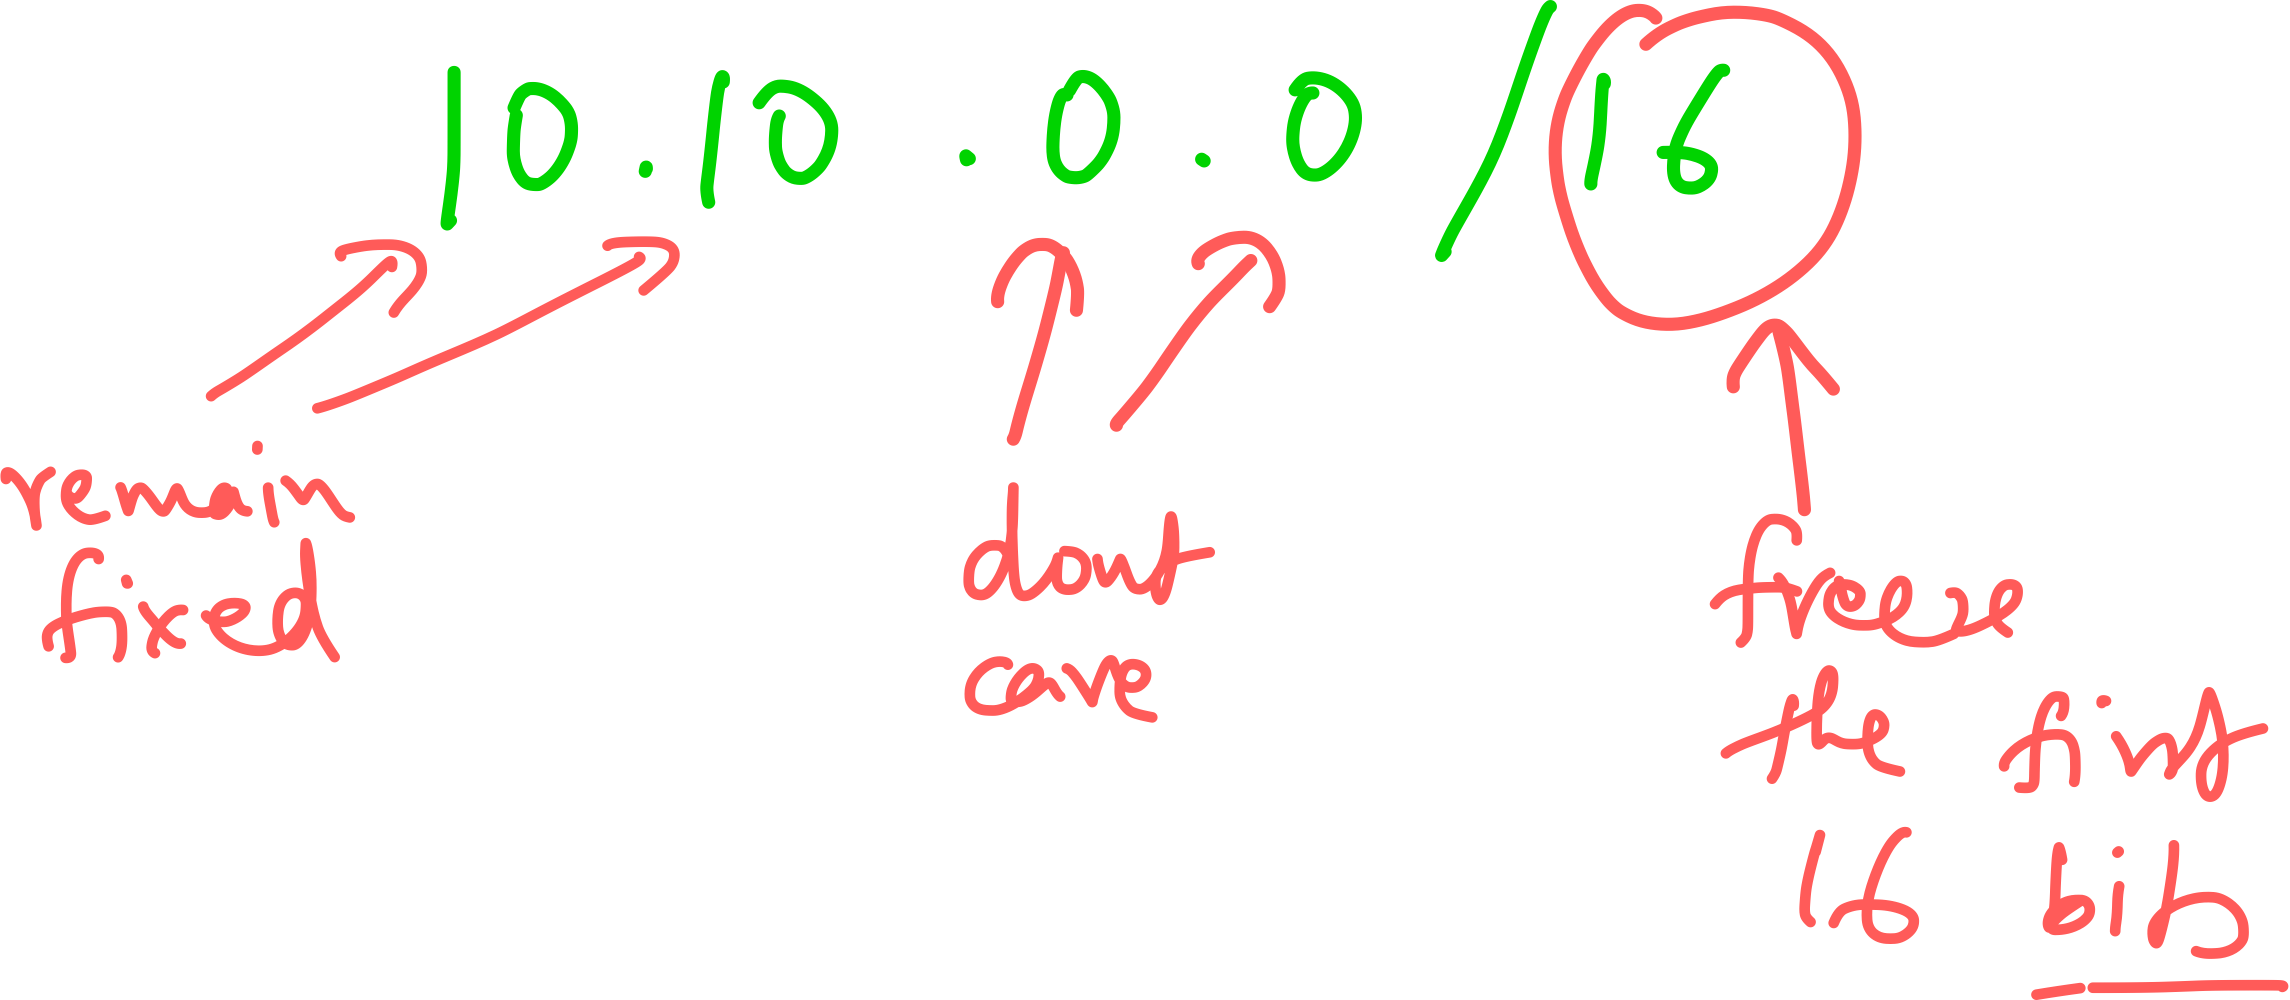 10.10.0.0/16
remain
fixed
dont
care
freee
the first
16 bits